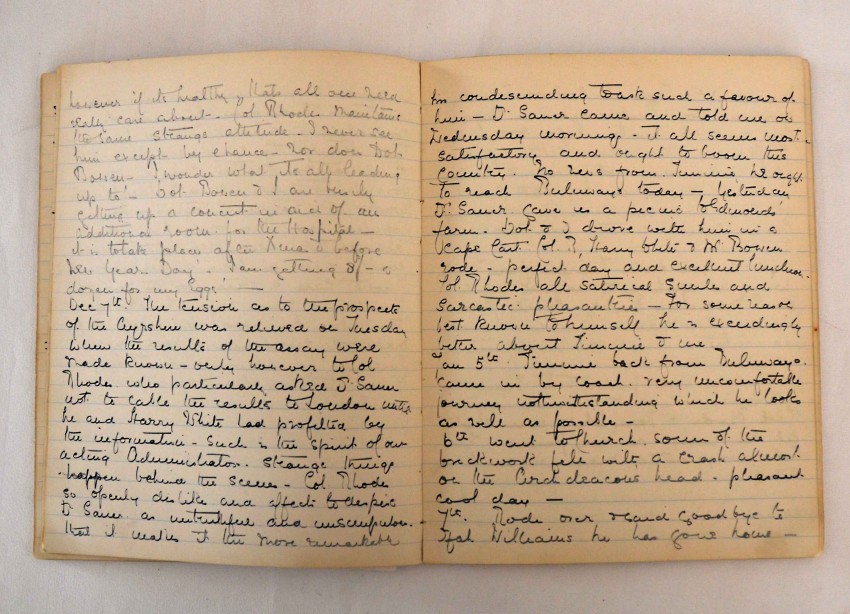 however if its healthy thats all one need
really care about. Col Rhodes maintains
the same strange attitude. I never see
him except by chance - nor does Dot
Bowen - I wonder what its all leading
up to - Dot Bowen & I are busily
getting up a concert in aid of an
additional room for the Hospital -
it is to take place after Xmas & before
New Year Day - I am getting 8/- a
dozen for my Eggs! -
Dec 7th. The tension as to the prospects
of the Ayrshire was relieved on Tuesday
when the results of the assay were
made known - only however to Col
Rhodes who particularly asked Dr Sauer
not to cable the results to London until
he and Harry White had profited by
the information - Such is the spirit of our
acting Administrator. Strange things
happen behind the scenes - Col Rhodes
so openly dislike and affects to despise
Dr Sauer as untruthful and unscrupulous.
that it makes it the more remarkable
his condescending to ask such a favour of
him - Dr Sauer came and told me on
Wednesday morning - it all seems most
satisfactory and ought to boom this
country. No news from Jimmie he ought
to reach Buluwayo today - Yesterday
Dr Sauer gave us a picnic to Edmonds'
farm. Dot & I drove with him in a
Cape Cart Col R, Harry White & Mr Bowen
rode - perfect day and excellent luncheon
Col Rhodes all satirical smiles and
sarcastic pleasantries - For some reason
best known to himself he is exceedingly
bitter against Jimmie & me.
Jan 5th Jimmie back from Buluwayo.
came in by coach. very uncomfortable
journey notwithstanding which he looks
as well as possible -
6th went to Church, some of the
brickwork fell with a crash almost
on the Archdeacons head. pleasant
cool day -
7th. Rode over & said goodbye to
Williams he has gone home -